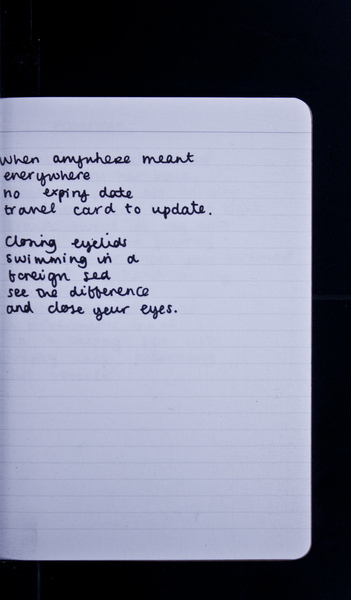 when anywhere meant
everywhere
no expiry date
travel card to update.
Closing eyelids
swimming in a
foreign sea
see the difference
and close your eyes.